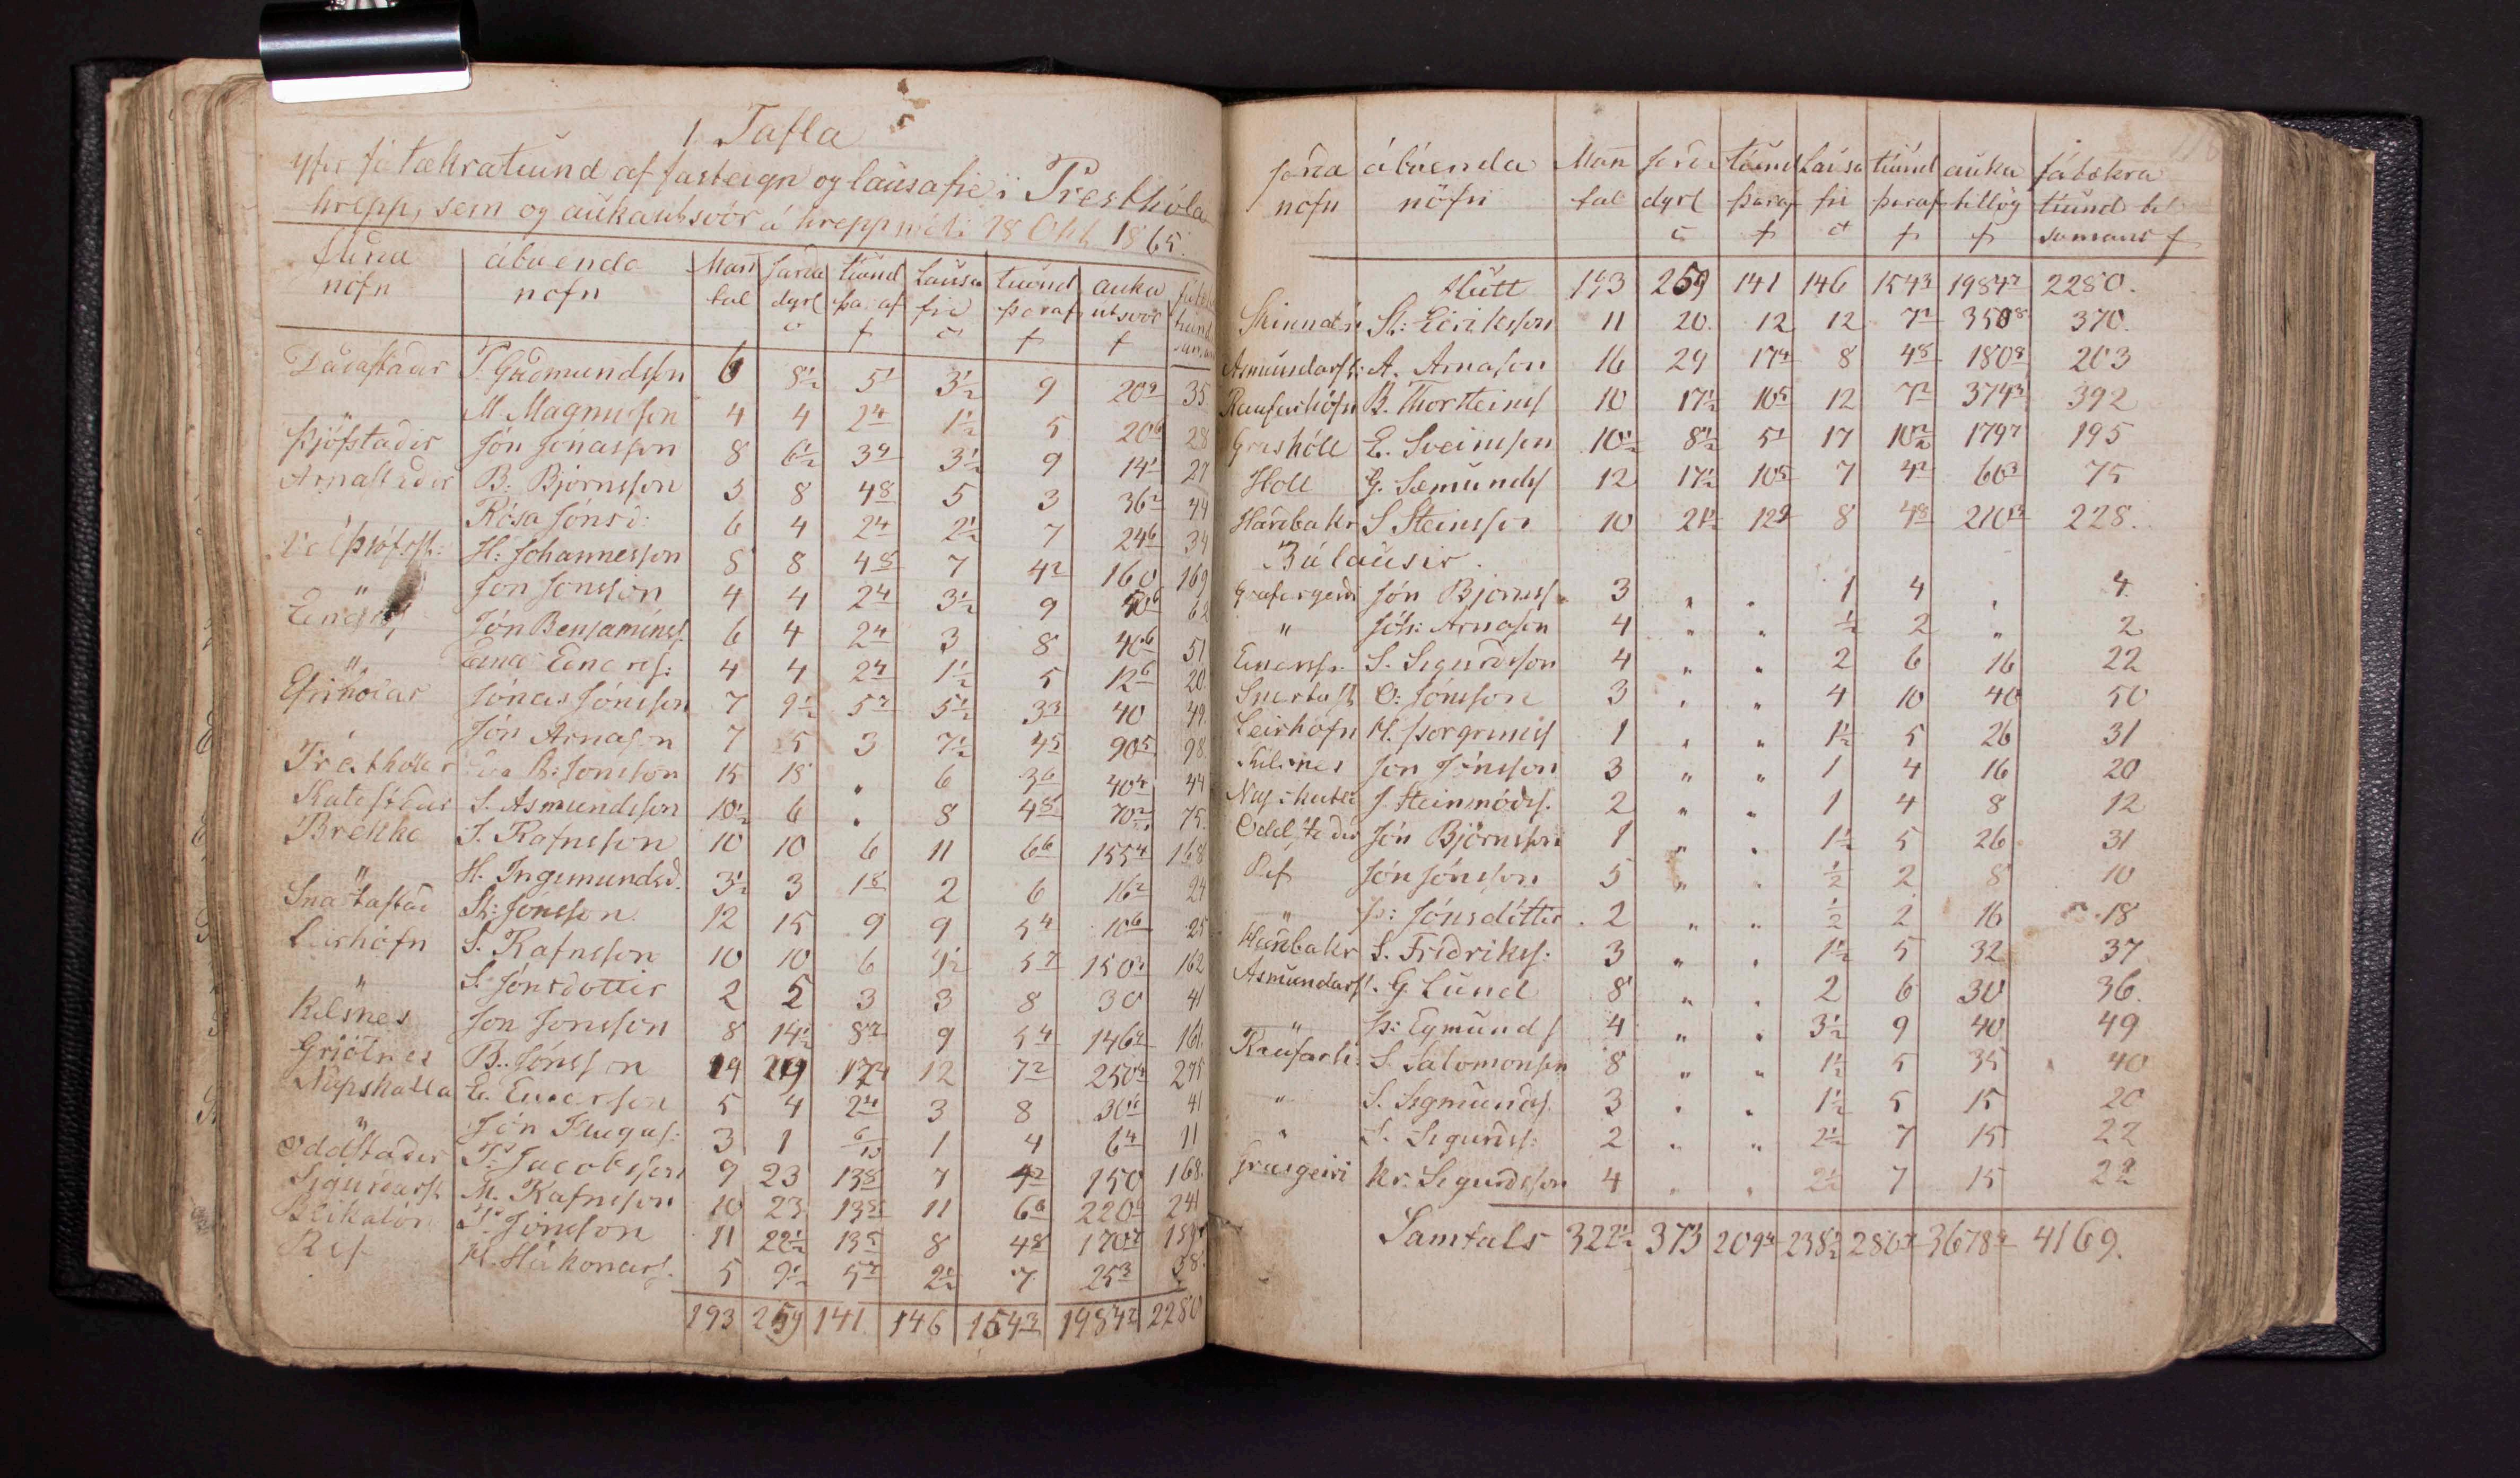 1. Tafla
yfir fátækratíund af fasteign og lausafie í Presthóla
hrepp, sem og aukaútsvör á hreppmóti 18 Okt 1865.
Jarða nöfn | ábúenda nöfn | Man tal | Jarða dyrl c | tíund þar af f | Lausa fie c | tíund þar af f | auka utsvör f
Daðastaðir T. Guðmundssn 6 8½ 5 1 3½ 9 20 9 35.
M. Magnusson 4 4 2 4 1½ 5 20 6 28
Þjófstaðir Jón Jónasson 8 6½ 3 9 3½ 9 14 1 27
Arnastaðir B. Björnsson 5 8 4 8 5 3 36 2 44
Rósa Jónsd: 6 4 2 4 2½ 7 24 6 34
H: Johannesson 8 8 4 8 7 4 2 160 169
" Jon Jonsson 4 4 2 4 3½ 9 50 6 62
Jón Benjamíness. 6 4 2 4 3 8 40 6 51
" Einar Einars: 4 4 2 4 1½ 5 12 6 20.
Efrihólar Jónas Jónsson 7 9½ 5 7 5½ 3 3 40 49.
Jón Arnason 7 5 3 7½ 4 5 90 5 98.
Presthólar B: Jonsson 15 18 " 6 3 6 40 4 44
Katastaðir S. Asmundsson 10½ 6 " 8 4 8 70 2 75.
Brekka I. Rafnsson 10 10 6 11 6 6 155 4 168
" H. Ingimundsd. 3½ 3 1 8 2 6 16 2 24
Snartastað St: Jónsson 12 15 9 9 5 4 10 6 25
Leirhöfn S. Rafnsson 10 10 6 9½ 5 7 150 3 162
" S. Jónsdottir 2 5 3 3 8 30 41
Kilsnes Jon Jonsson 8 14½ 8 7 9 5 4 146 9 161.
Grjótnes B. Jónsson 14 29 17 4 12 7 2 250 4 275
Nupskatla E. Einarsson 5 4 2 4 3 8 30 6 41
" Jón Flugas: 3 1 6/10 1 4 6 4 11
Oddstaðir P. Jacobsson 9 23 13 8 7 4 2 150 168.
Sigurðarst M. Rafnsson 10 23 13 8 11 6 6 220 6 241
Blikalón Þ. Jónsson 11 22½ 13 5 8 4 8 170 7
Rif H. Hákonars. 5 9½ 5 7 2½ 7 25 3 38.
193 259 141 146 154 3 1984 2 2280
Jarða nöfn | ábúenda nöfn | Man tal | Jarða dyrl c | tíund þaraf f | Lausa fie c | tíund þaraf f | auka tillög f | fátækra tíund til samans f
Flutt 193 259 141 146 154 3 1984 2 2280.
Skinnal: St: Eiriksson 11 20. 12 12 7 2 350 8 370.
Asmundarst: A. Arnason 16 29 17 4 8 4 8 180 8 203
Raufarhöfn B. Thorsteinss 10 17½ 10 5 12 7 2 374 3 392
Grashóll E. Sveinsson 10½ 8½ 5 1 17 10 2 179 7 195
Holl G. Sæmundss 12 17½ 10 5 7 4 2 60 3 75
Harðbakr S. Steinsson 10 21½ 12 9 8 4 8 210 3 228.
Búlausir.
Grafargerði Jón Bjornss. 3 " " 1 4 " 4.
" Jóh: Arnason 4 " " ½ 2 " 2
Einarss. S. Sigurðsson 4 " " 2 6 16 22
Snartast O: Jónsson 3 " " 4 10 40 50
Leirhöfn H. Þorgrimss 1 " " 1½ 5 26 31
Kilsnes Jon Jónsson 3 " " 1 4 16 20
Nupskatla J. Steinmóðss. 2 " " 1 4 8 12
Oddstaðir Jón Björnsson 1 " " 1½ 5 26 31
Rif Jón Jónsson 5 " " ½ 2 8 10
" Þ: Jónsdóttir 2 " " ½ 2 16 18
Harðbakr S. Friðrikss: 3 " " 1½ 5 32 37
Asmundarst. G Lund 8 " " 2 6 30 36.
" Þ: Egmundss 4 " " 3½ 9 40 49
Raufarh: S. Salomonsen 8 " " 1½ 5 35 40
" S. Sigmunds. 3 " " 1½ 5 15 20
" S. Sigurðss: 2 " " 2½ 7 15 22
Grasgeiri Kr. Sigurðsson 4 " " 2½ 7 15 22
Samtals 322½ 373 209 4 238½ 280 7 3678 9 4169.